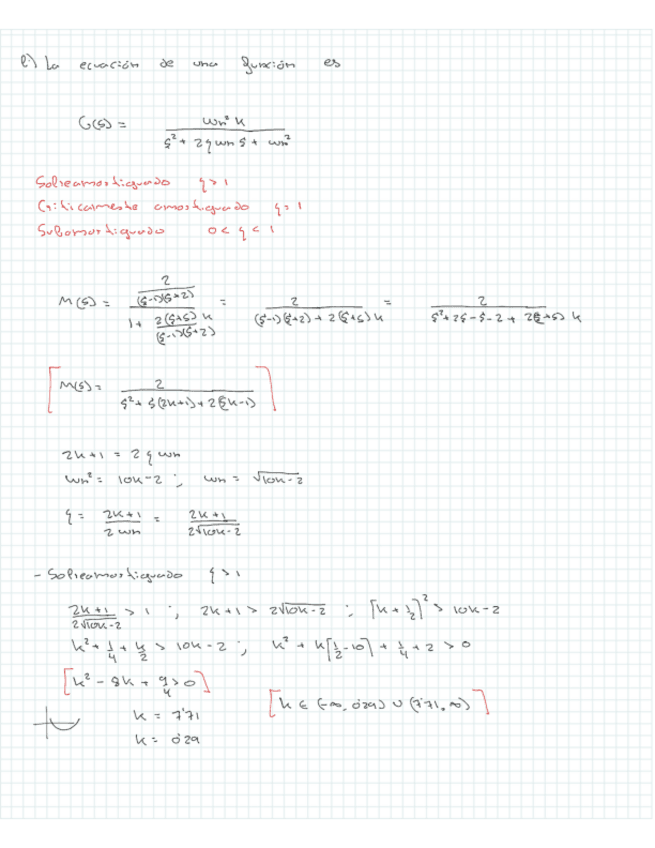 e) La ecuación de una función es
G(s) = ωn² K / (s² + 2ζωn s + ωn²)
Sobreamortiguado ζ > 1
Críticamente amortiguado ζ = 1
Subamortiguado 0 < ζ < 1
M(s) = (2 / ((s-1)(s+2))) / (1 + 2(s+5)K / ((s-1)(s+2))) = 2 / ((s-1)(s+2) + 2(s+5)K) = 2 / (s² + 2s - s - 2 + 2(s+5)K)
[M(s) = 2 / (s² + s(2K+1) + 2(5K-1))]
2K+1 = 2ζωn
ωn² = 10K-2 ; ωn = √(10K-2)
ζ = (2K+1) / (2ωn) = (2K+1) / (2√(10K-2))
- Sobreamortiguado ζ > 1
(2K+1) / (2√(10K-2)) > 1 ; 2K+1 > 2√(10K-2) ; [K + 1/2]² > 10K-2
K² + 1/4 + K/2 > 10K-2 ; K² + K[1/2 - 10] + 1/4 + 2 > 0
[K² - 8K + 9/4 > 0]
K = 7'71
K = 0'29
[K ∈ (-∞, 0'29) ∪ (7'71, ∞)]